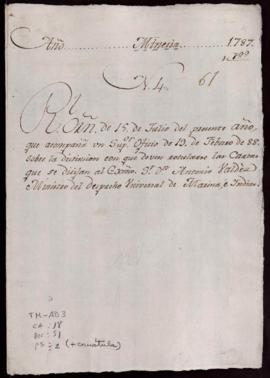 Año Minería 1787.
N. 4. 61
Rl. Orn. de 15, de Julio del presente año,
que acompañó un Supr. Oficio de 19, de Febrero de 88.
sobre la distinción con que deven rotularse las Cartas
que se dirijan al Exmo. Sr. Dn. Antonio Valdés
Ministro del Despacho Universal de Marina, e Indias.
TM-AD3
CA: 18
DOC: 51
FS: 2 (+ carátula)